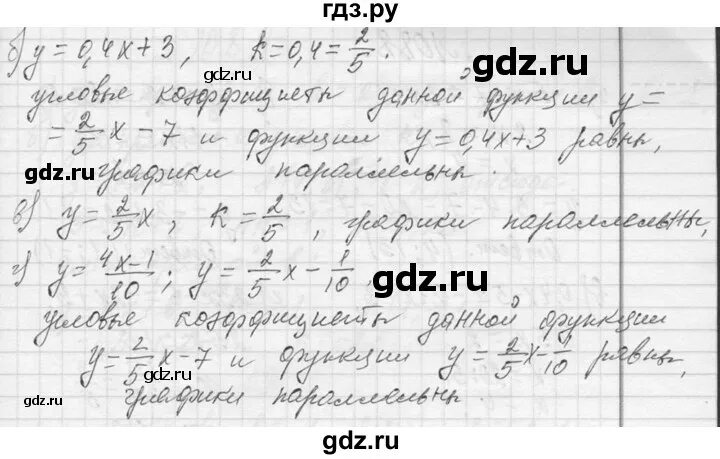 гдз.ру
б) y = 0,4x + 3, k = 0,4 = 2/5.
gdz.ru gdz.ru
угловые коэффициенты данной функции y =
= 2/5 x - 7 и функции y = 0,4x + 3 равны,
gdz.ru
графики параллельны.
в) y = 2/5 x, k = 2/5, графики параллельны,
gdz.ru gdz.ru
г) y = 4x-1/10; y = 2/5 x - 1/10
угловые коэффициенты данной функции
gdz.ru
y = 2/5 x - 7 и функции y = 2/5 x - 1/10 равны,
gdz.ru gdz.ru
графики параллельны.
gdz.ru